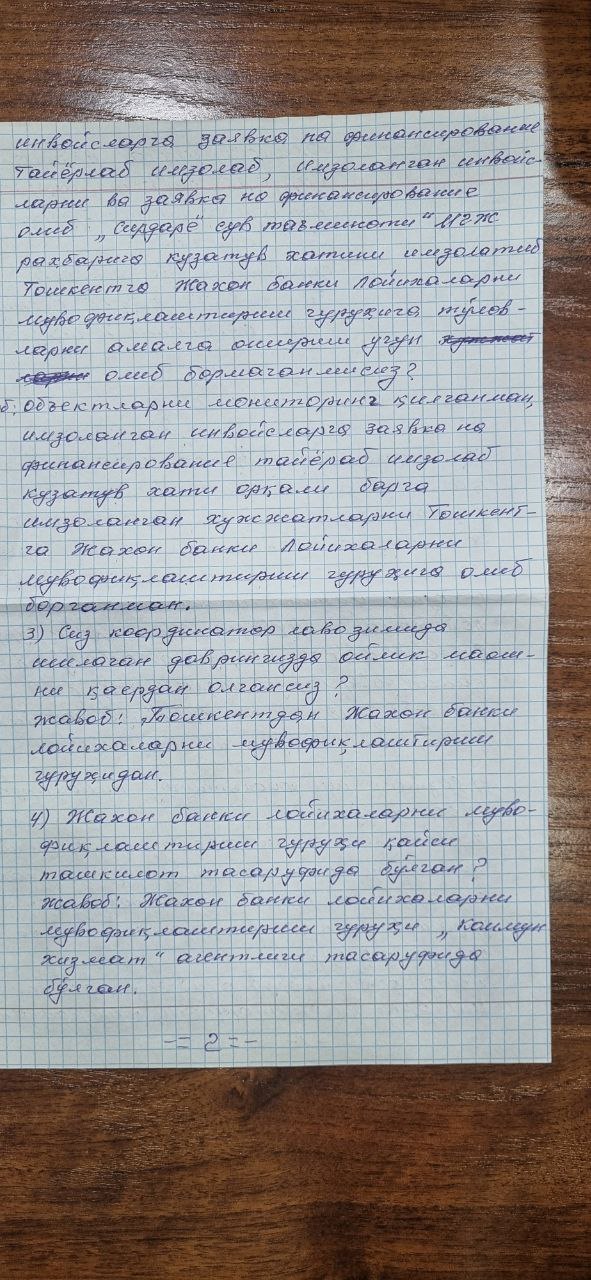 инвойсларга заявка на финансирование
тайёрлаб имзолаб, имзоланган инвойс-
ларни ва заявка на финансирование
олиб „Сирдарё" сув таъминоти" МЧЖ
рахбарига кузатув хатини имзолатиб
Тошкентга Жахон банки Лойихаларни
мувофиқлаштириш гурухига тўлов-
ларни амалга ошириш учун
олиб бормаганмисиз?
б: Объектларни мониторинг қилганман,
имзоланган инвойсларга заявка на
финансирование тайёраб имзолаб
кузатув хати орқали барча
имзоланган хужжатларни Тошкент-
га Жахон банки Лойихаларни
мувофиқлаштириш гурухига олиб
борганман.
3) Сиз координатор лавозимида
ишлаган даврингизда ойлик маош-
ни қаердан олгансиз?
жавоб: Тошкентдан Жахон банки
лойихаларни мувофиқлаштириш
гурухидан.
4) Жахон банки лойихаларни муво-
фиқлаштириш гурухи қайси
ташкилот тасаруфида бўлган?
жавоб: Жахон банки лойихаларни
мувофиқлаштириш гурухи „Коммун
хизмат" агентлиги тасаруфида
бўлган.
-= 2 =-